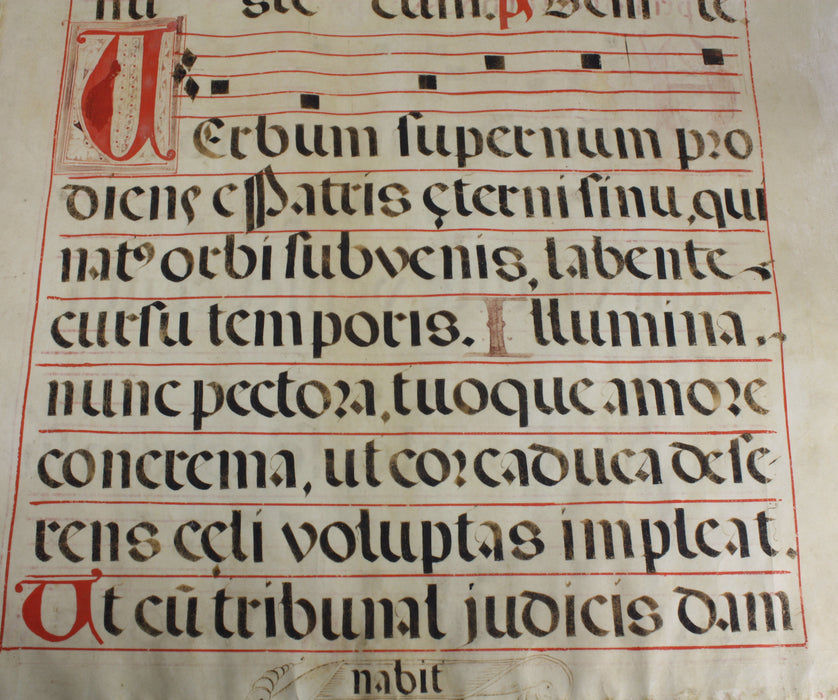 VErbum supernum pro
diens e Patris ęterni sinu, qui
natꝰ orbi subvenis, labente
cursu temporis. Illumina
nunc pectora, tuoque amore
concrema, ut cor caduca dese-
rens cęli voluptas impleat.
Ut cū tribunal judicis dam
nabit